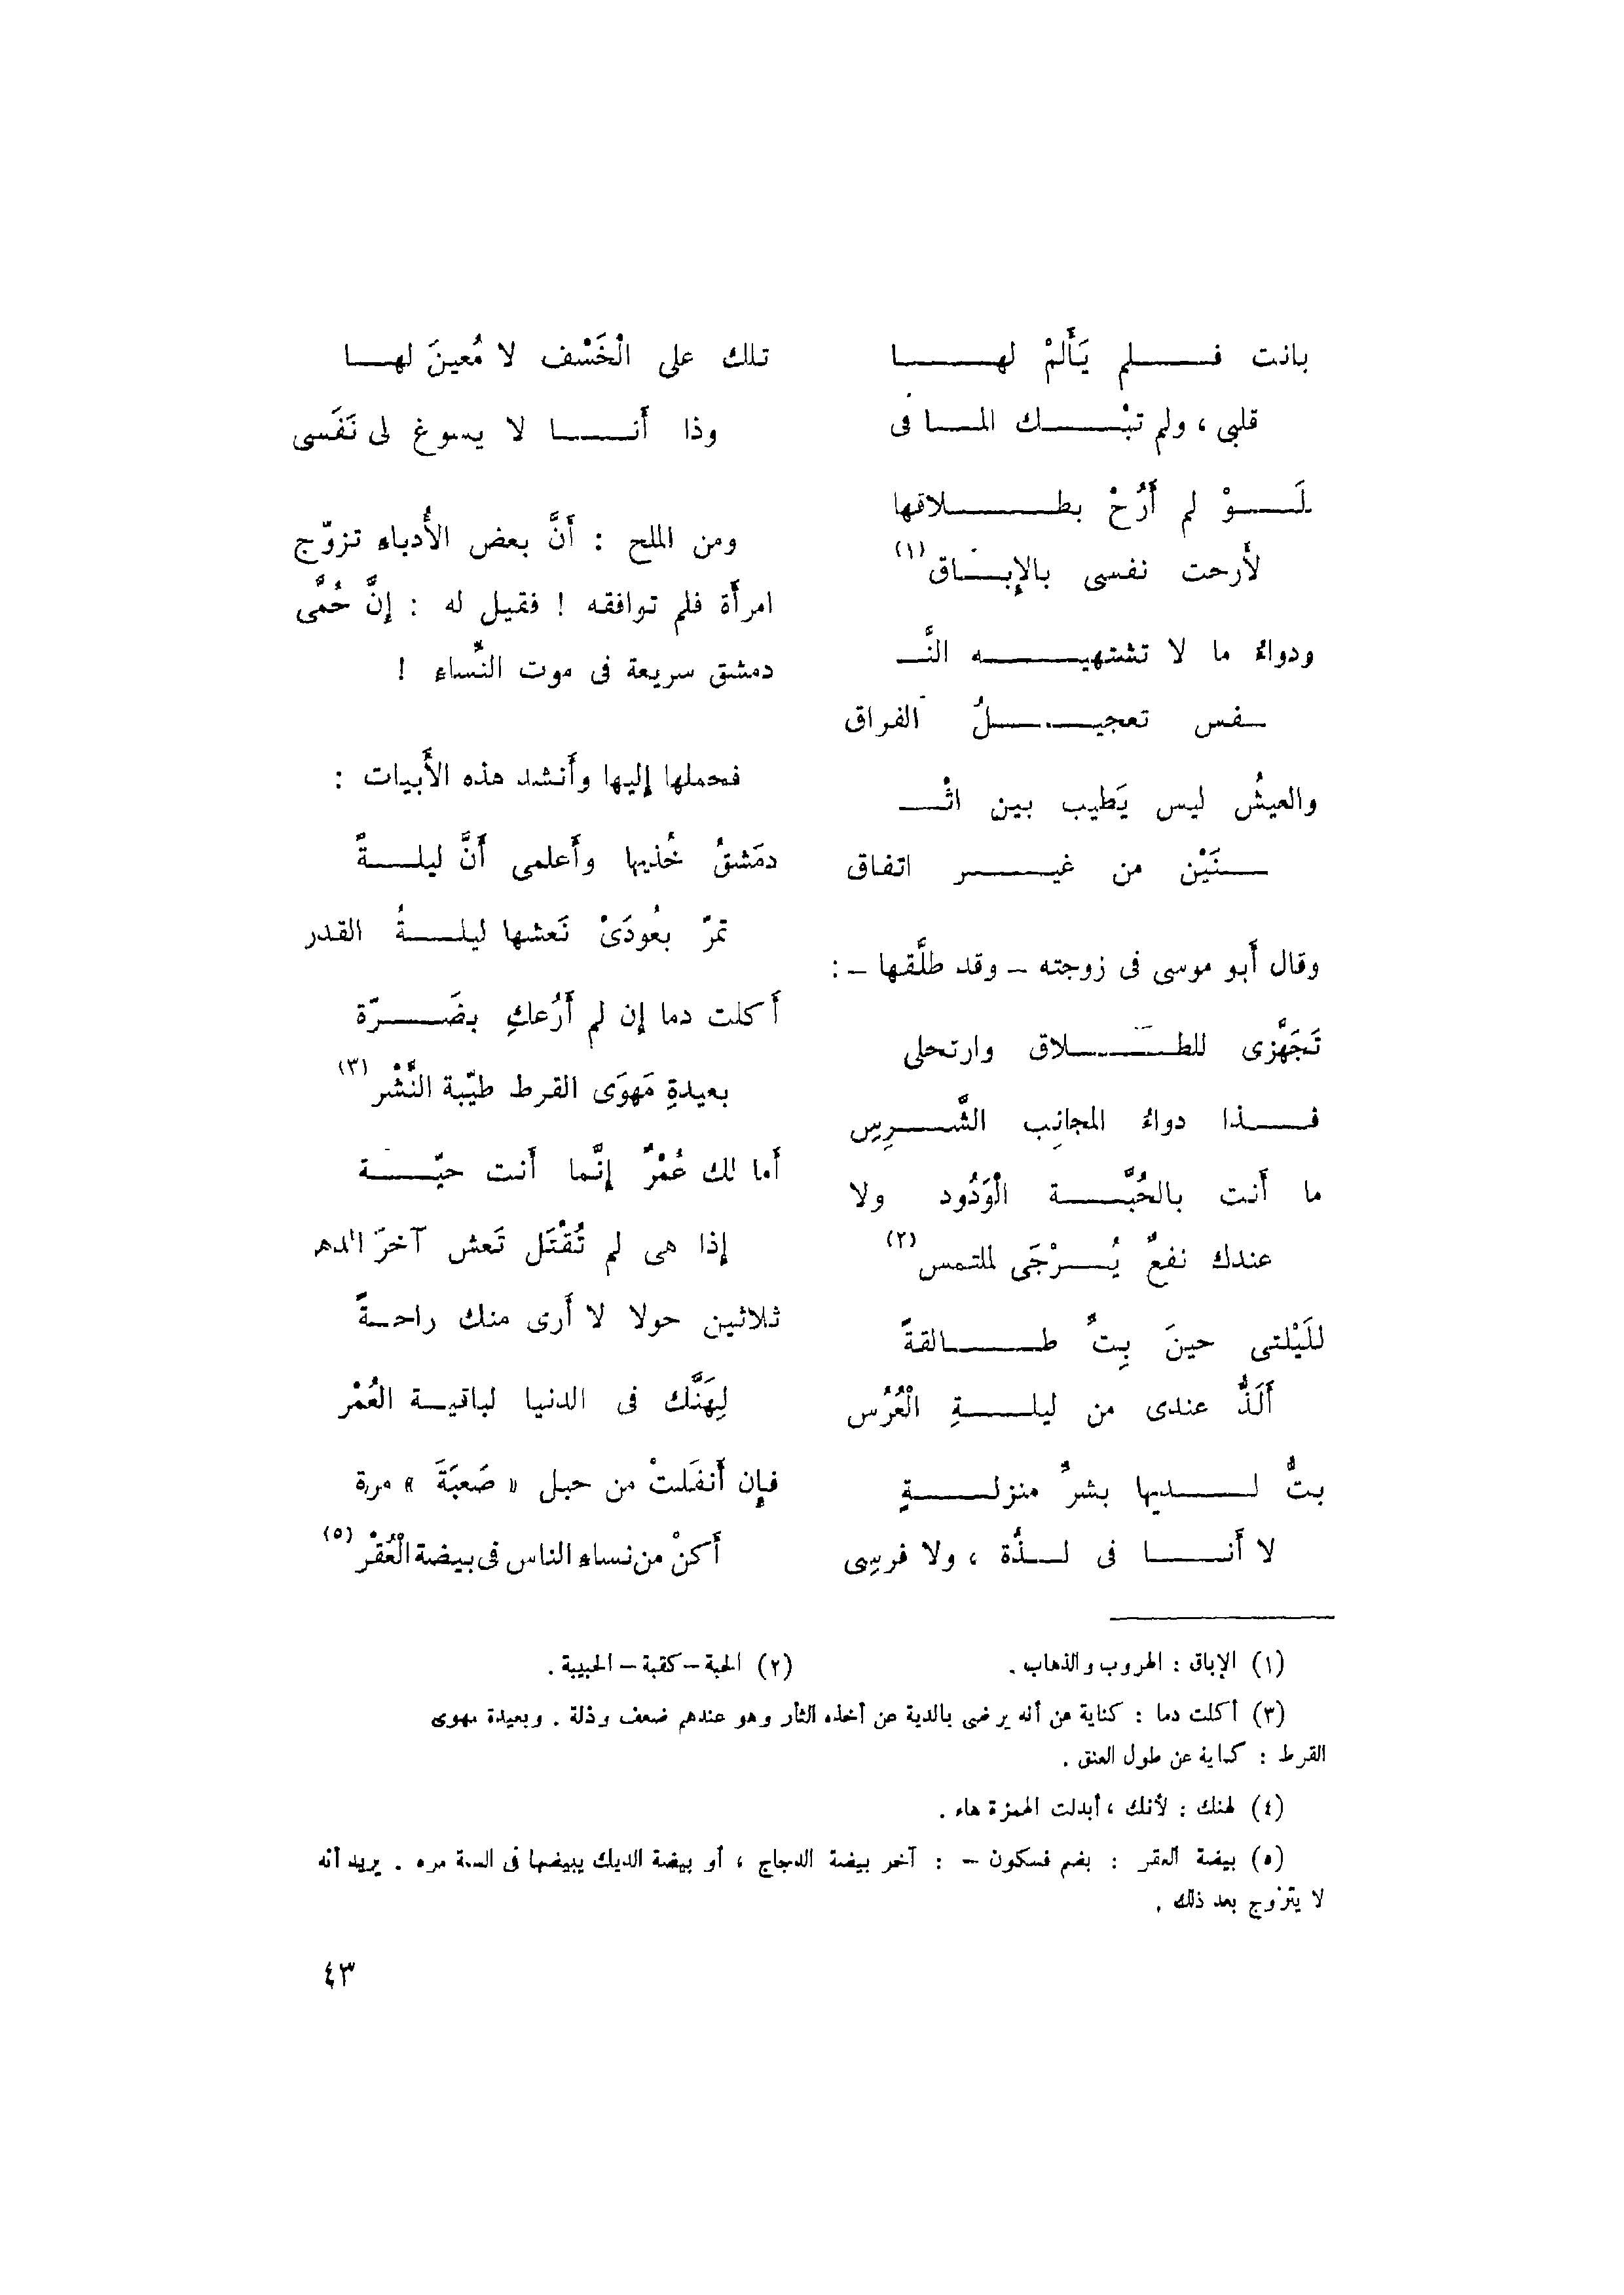 بانت فلم يَأْلمْ لها
قلبى ، ولم تبْك المآقى
لَوْ لم أَرُحْ بطلاقها
لأَرحت نفسى بالإِباق (١)
ودواءُ ما لا تشتهيه النَّـ
ـفس تعجيلُ الفراق
والعيشُ ليس يَطيب بين اثْـ
ـنَيْن من غير اتفاق
وقال أَبو موسى فى زوجته – وقد طلَّقها – :
تَجَهَّزى للطلاق وارتحلى
فذا دواءُ المجانِب الشَّرِس
ما أَنت بالحُبَّة الْوَدُود ولا
عندك نفعٌ يُرْجَى لملتمس (٢)
للَيْلتى حينَ بِتِّ طالقةً
أَلَذُّ عندى من ليلةِ الْعُرُس
بتُّ لديها بشرِّ منزلةٍ
لا أَنا فى لذَّة ، ولا فرسِى
تلك على الْخَسْف لا مُعينَ لها
وذا أَنا لا يسوغ لى نَفَسى
ومن الملح : أَنَّ بعض الأُدباءِ تزوّج
امرأَة فلم توافقه ! فقيل له : إِنَّ حُمَّى
دمشق سريعة فى موت النِّساءِ !
فحملها إِليها وأَنشد هذه الأَبيات :
دمَشقُ خُذيها وأَعلمى أَنَّ ليلةً
تمرّ بعُودَىْ نَعشها ليلةُ القدر
أَكلت دما إِن لم أَرُعكِ بضَرّة
بعيدةِ مَهوَى القرط طيّبة النَّشْر (٣)
أَما لك عُمْرٌ إِنَّما أَنت حيّة
إِذا هى لم تُقْتَل تَعش آخرَ الدهر
ثلاثين حولا لا أَرى منك راحةً
لِهَنَّك فى الدنيا لباقية العُمْر
فإِن أَنفَلتْ من حبل « صَعبَةَ » مرة
أَكنْ من نساءِ الناس فى بيضة الْعُقْر (٥)
(١) الإباق : الهروب والذهاب . (٢) الحبة – كقبة – الحبيبة .
(٣) أكلت دما : كناية عن أنه يرضى بالدية عن أخذه الثأر وهو عندهم ضعف وذلة . وبعيدة مهوى
القرط : كناية عن طول العنق .
(٤) لهنك : لأنك ، أبدلت الهمزة هاء .
(٥) بيضة العقر : بضم فسكون – : آخر بيضة الدجاج ، أو بيضة الديك يبيضها فى السنة مرة . يريد أنه
لا يتزوج بعد ذلك .
٤٣